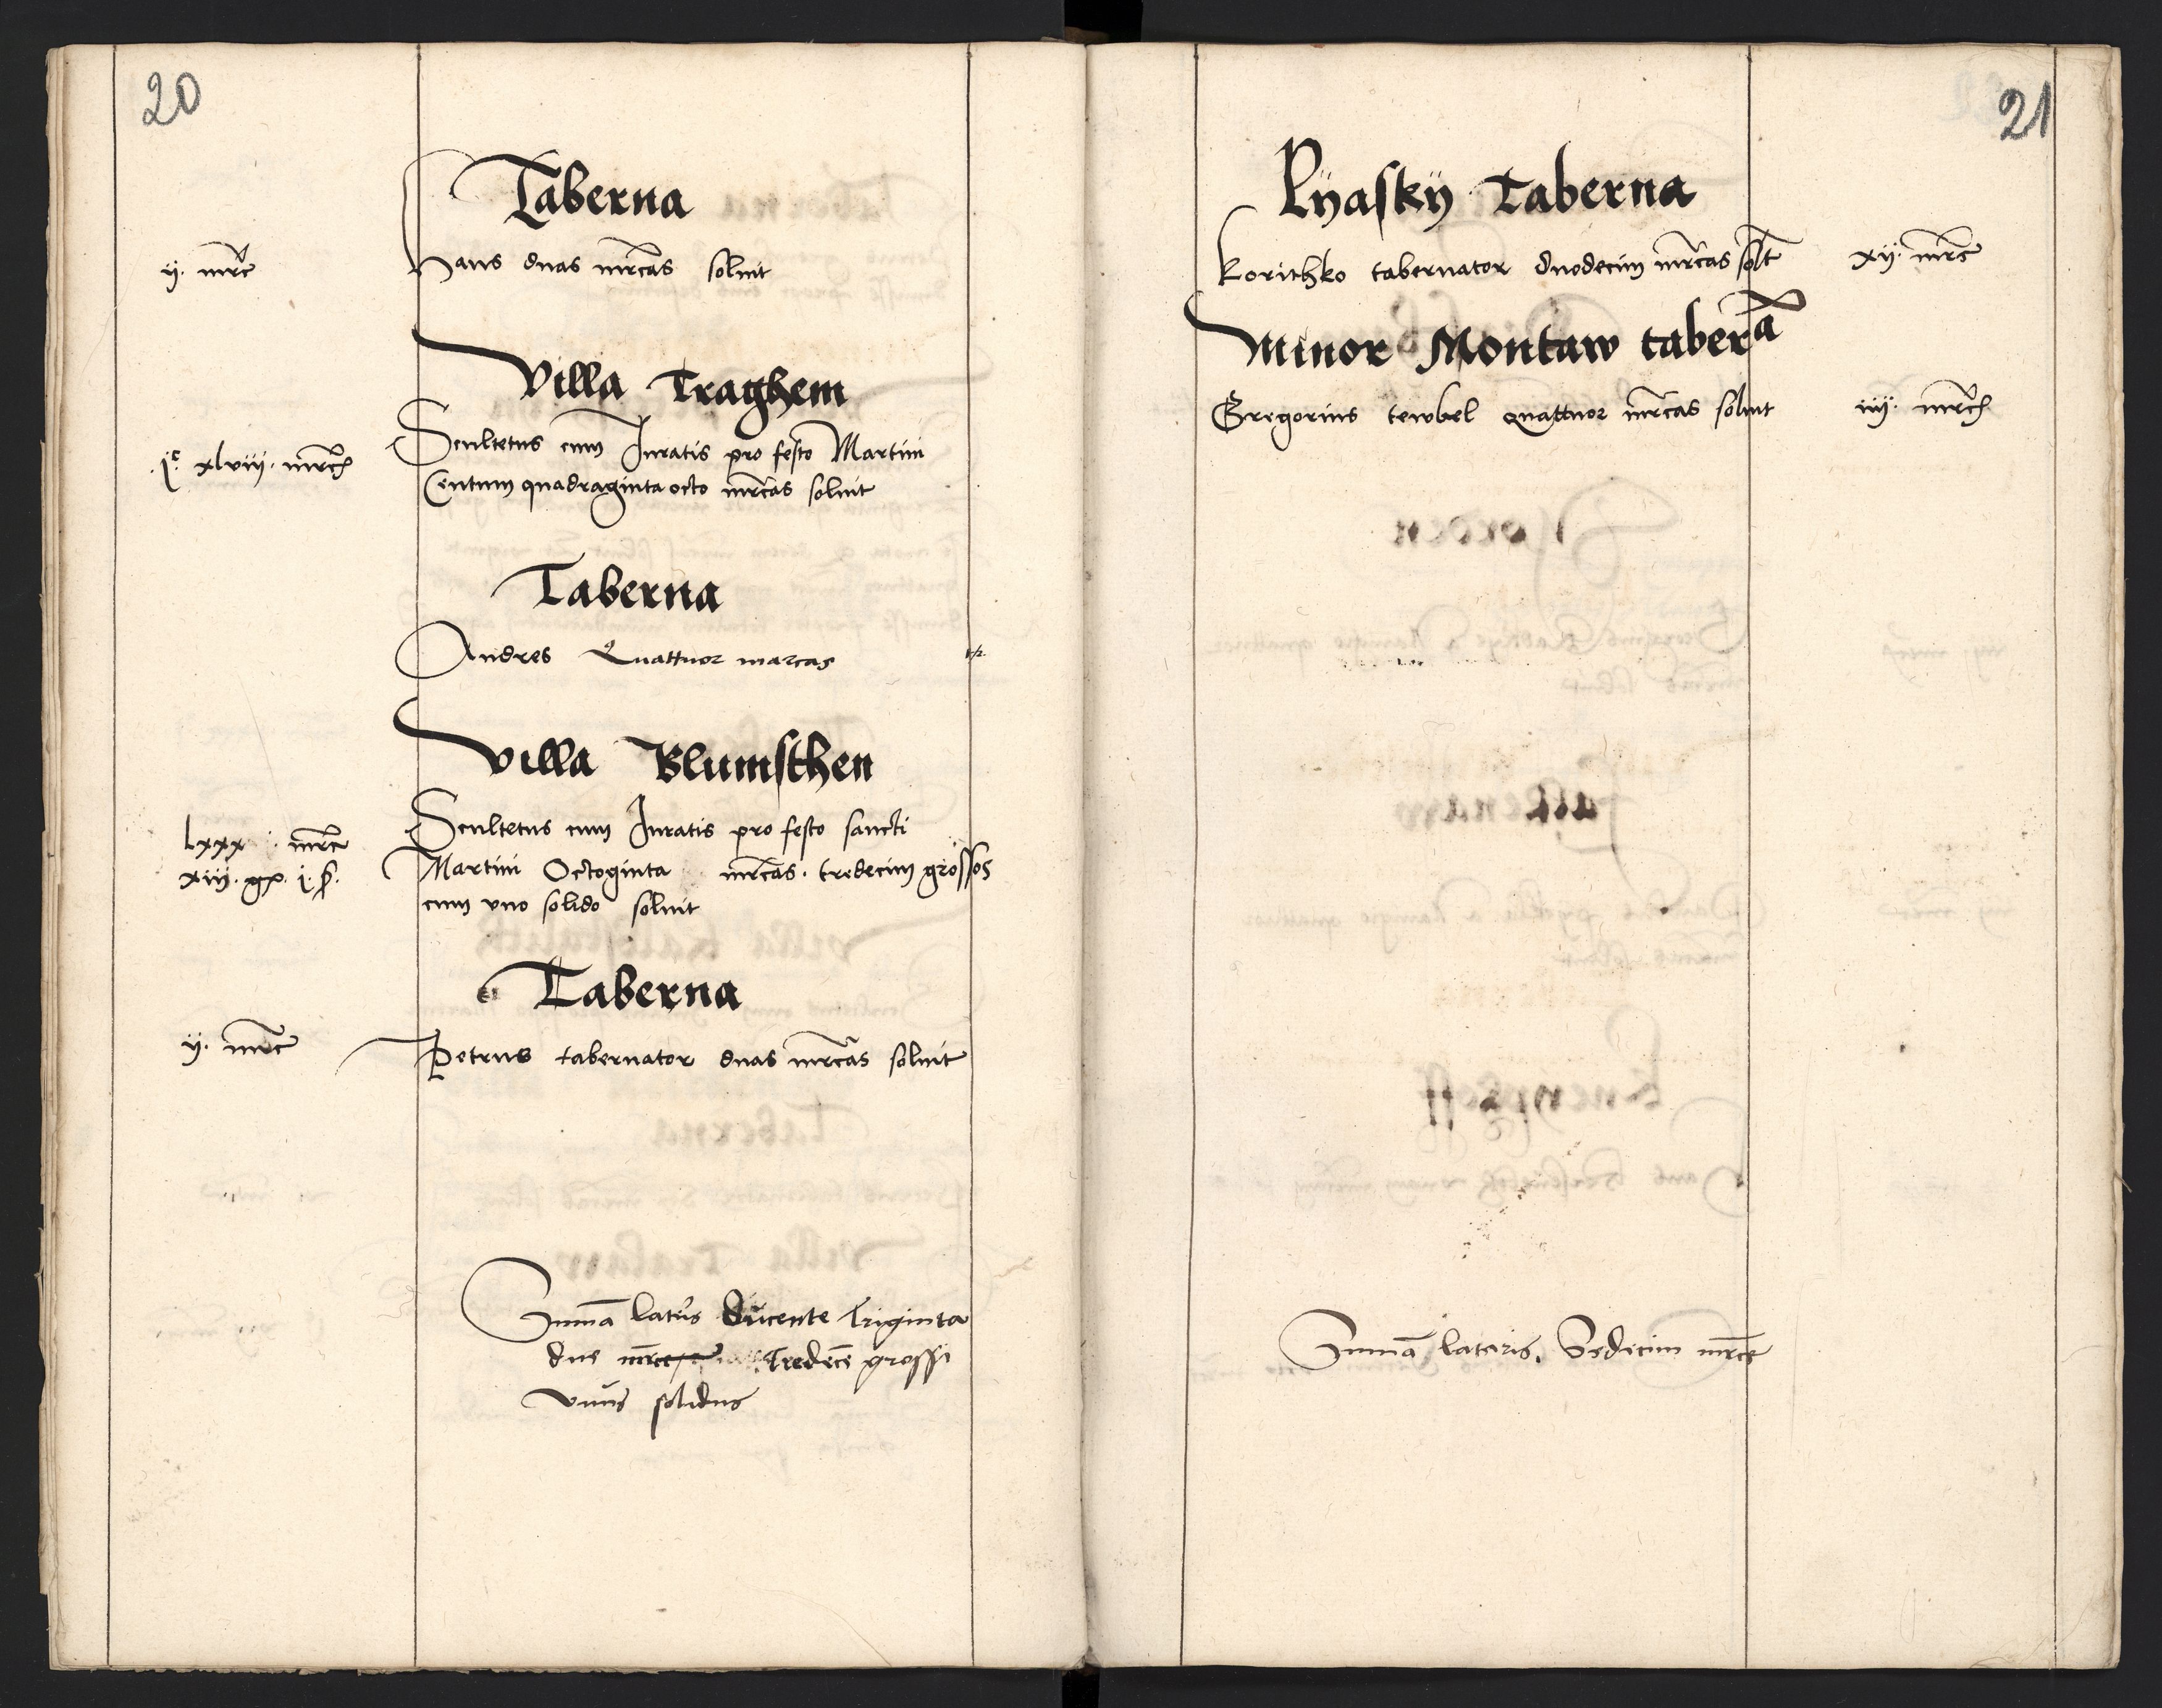 20
Taberna
ij. mrc Hans duas mrcas soluit
Villa Traghem
Scultetus cum Juratis pro festo Martini
jc xlviij. mrc Centum quadraginta octo mrcas soluit
Taberna
Andres Quattuor marcas
Villa Blumsthen
Scultetus cum Juratis pro festo sancti
lxxx mrc Martini Octoginta mrcas. tredecim grossos
xiij. gr. j. ß. cum vno solido soluit
Taberna
ij. mrc Petrus tabernator duas mrcas soluit
Suma latus ducente Triginta
due mrce Tredece grossi
vnus solidus
21
Pyasky Taberna
Korithko tabernator duodecim mrcas solt xij. mrc
Minor Montaw tabera
Gregorius tewbel quattuor mrcas soluit iiij. mrc
Suma lateris. Sedecim mrce